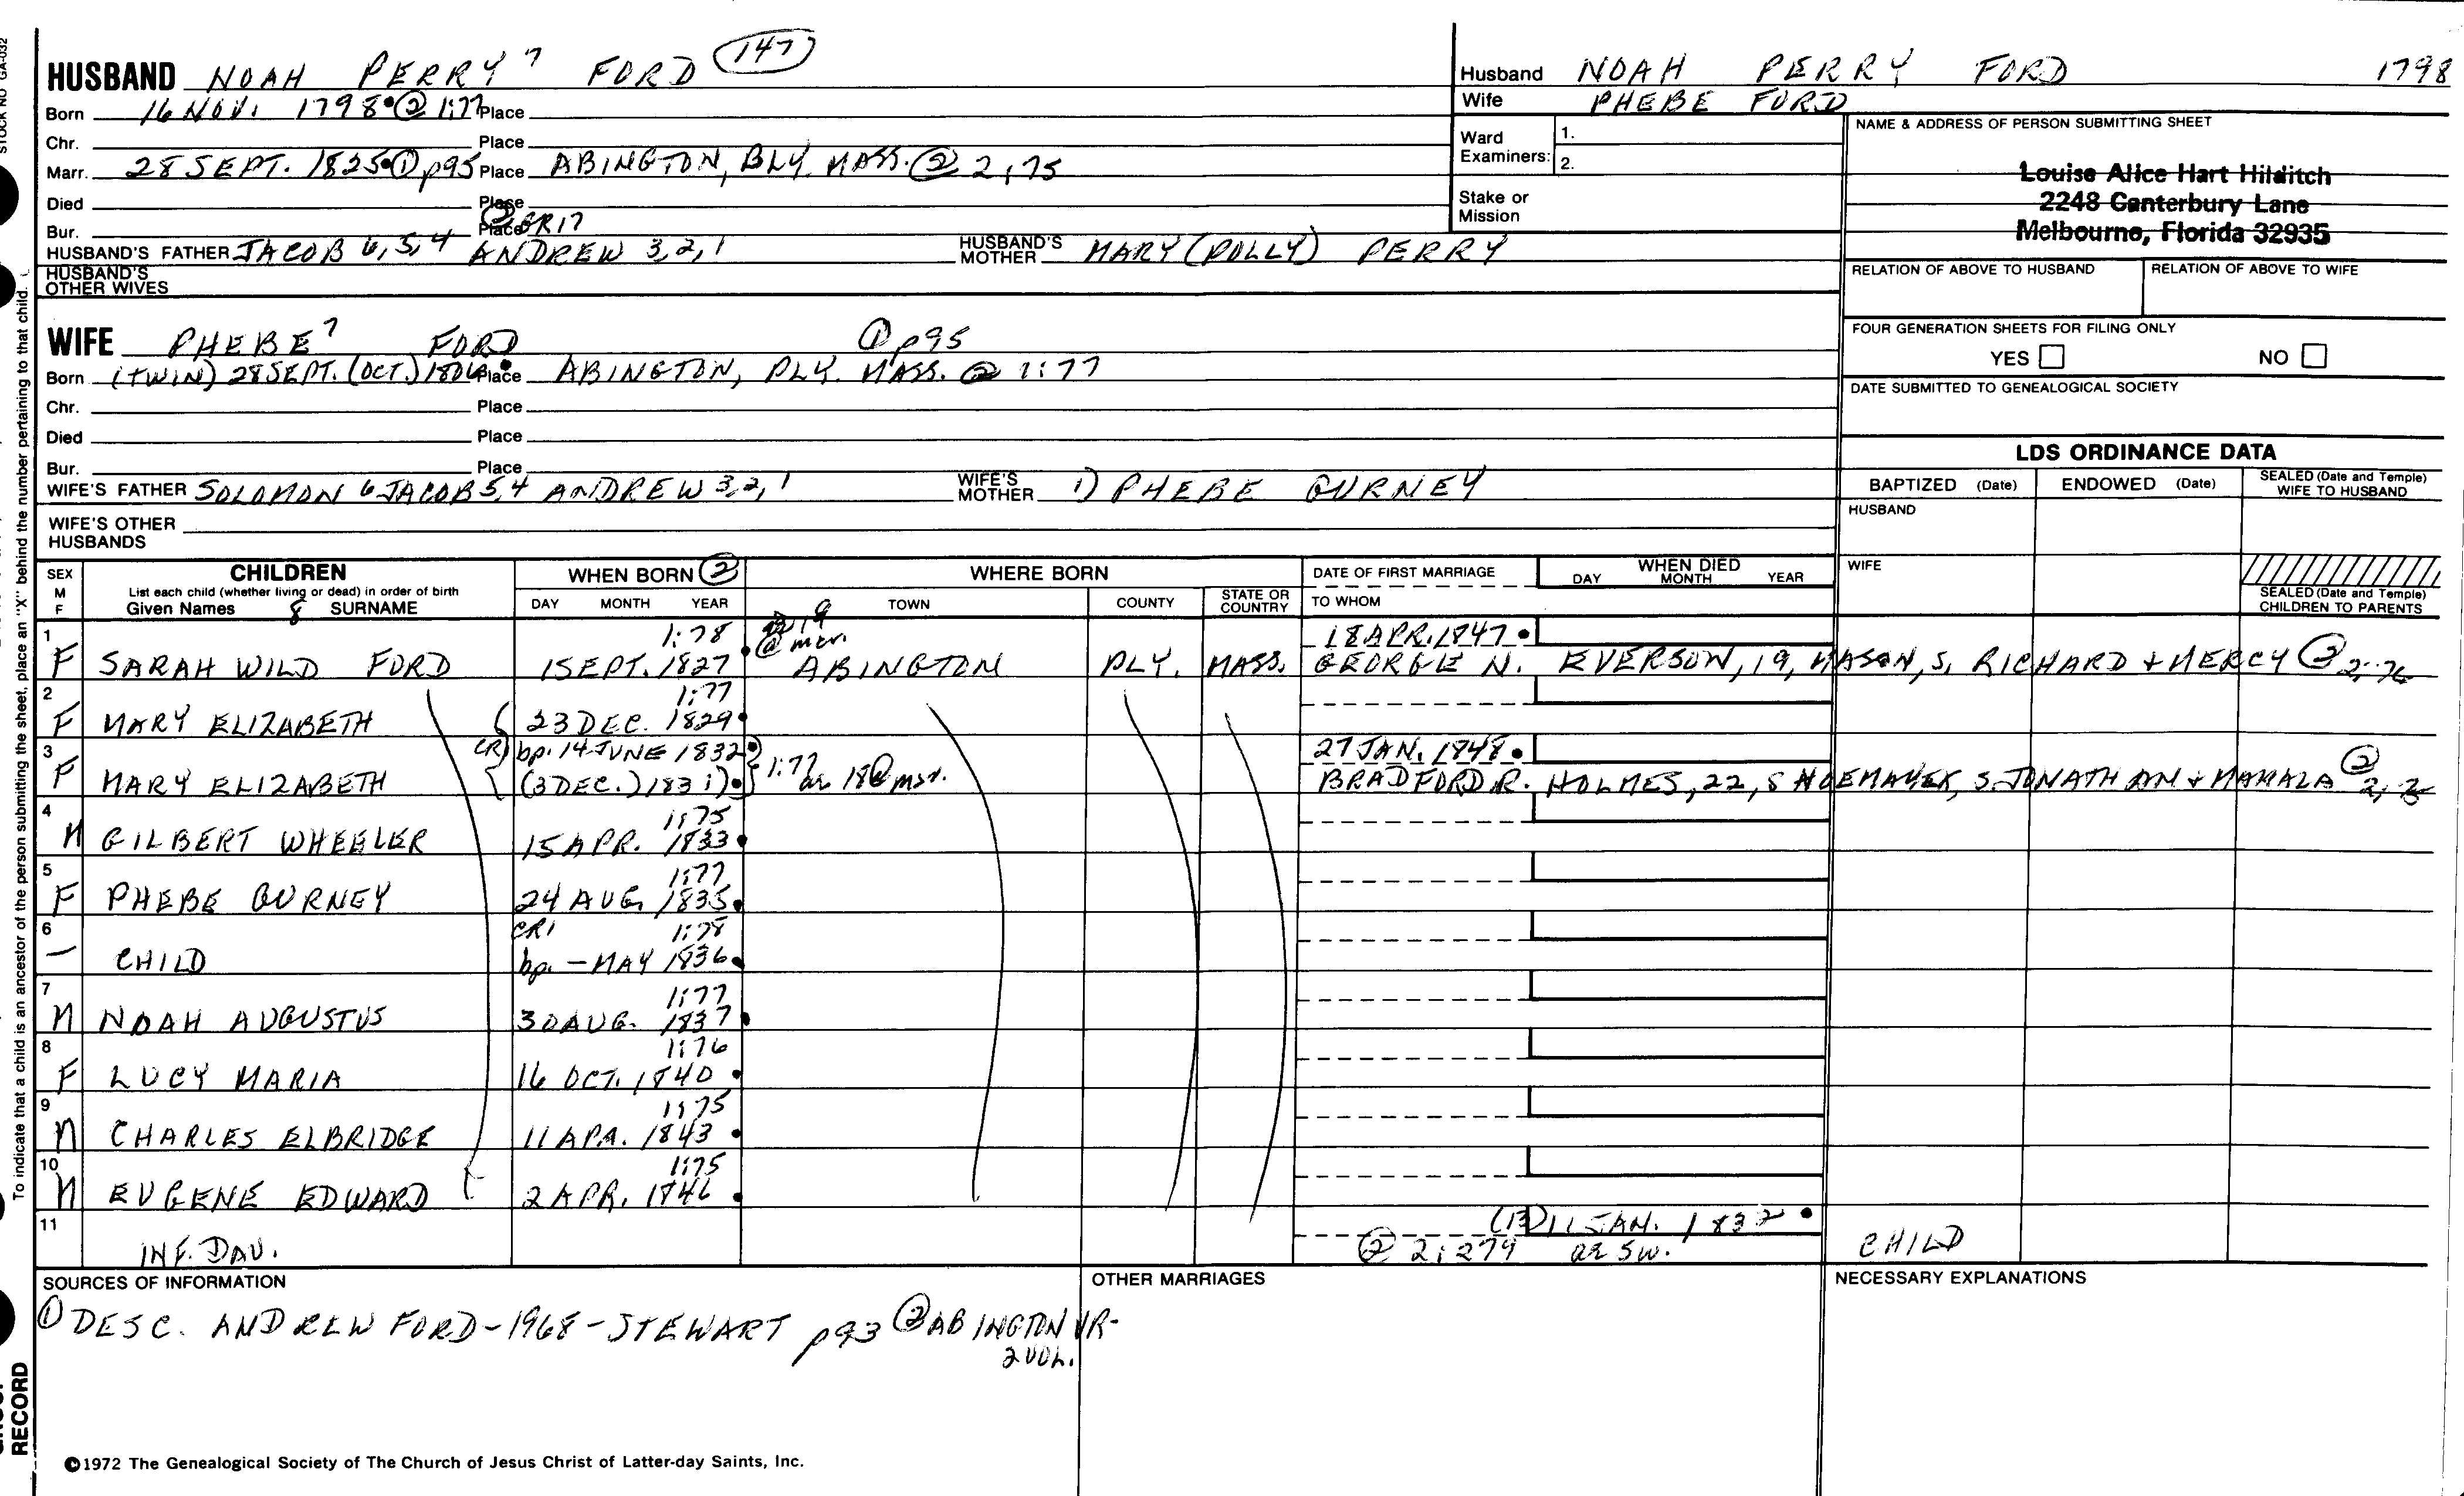 STOCK NO GA-032
HUSBAND NOAH PERRY 7 FORD 147
Born 16 NOV. 1798 ② 1:77 Place
Chr. Place
Marr. 28 SEPT. 1825 ① p95 Place ABINGTON, PLY. MASS. ② 2,75
Died Place
Bur. Place ② GR17
HUSBAND'S FATHER JACOB 6,5,4 ANDREW 3,2,1 HUSBAND'S MOTHER MARY (POLLY) PERRY
HUSBAND'S OTHER WIVES
WIFE PHEBE 7 FORD ① p95
Born (TWIN) 28 SEPT. (OCT.) 1806 Place ABINGTON, PLY. MASS. ② 1:77
Chr. Place
Died Place
Bur. Place
WIFE'S FATHER SOLOMON 6 JACOB 5,4 ANDREW 3,2,1 WIFE'S MOTHER 1) PHEBE GURNEY
WIFE'S OTHER HUSBANDS
Husband NOAH PERRY FORD 1798
Wife PHEBE FORD
Ward Examiners: 1.
2.
Stake or Mission
NAME & ADDRESS OF PERSON SUBMITTING SHEET
Louise Alice Hart Hilditch
2248 Canterbury Lane
Melbourne, Florida 32935
RELATION OF ABOVE TO HUSBAND RELATION OF ABOVE TO WIFE
FOUR GENERATION SHEETS FOR FILING ONLY
YES NO
DATE SUBMITTED TO GENEALOGICAL SOCIETY
LDS ORDINANCE DATA
BAPTIZED (Date) ENDOWED (Date) SEALED (Date and Temple) WIFE TO HUSBAND
HUSBAND
WIFE
SEALED (Date and Temple) CHILDREN TO PARENTS
SEX M F CHILDREN WHEN BORN ② WHERE BORN DATE OF FIRST MARRIAGE WHEN DIED
List each child (whether living or dead) in order of birth
Given Names & SURNAME DAY MONTH YEAR TOWN COUNTY STATE OR COUNTRY TO WHOM DAY MONTH YEAR
1 1:78 19 @ mar. 18 APR. 1847
F SARAH WILD FORD 1 SEPT. 1827 ABINGTON PLY. MASS. GEORGE N. EVERSON, 19, MASON, S. RICHARD + MERCY ② 2:76
2 1:77
F MARY ELIZABETH 23 DEC. 1829
3 CR1 bp. 14 JUNE 1832 27 JAN. 1848
F MARY ELIZABETH (3 DEC.) 1831) 1:77 ae 18 @ mar. BRADFORD R. HOLMES, 22, SHOEMAKER, S. JONATHAN + MAHALA ②
4 1:75
M GILBERT WHEELER 15 APR. 1833
5 1:77
F PHEBE GURNEY 24 AUG. 1835
6 CR1 1:78
— CHILD bp. — MAY 1836
7 1:77
M NOAH AUGUSTUS 30 AUG. 1837
8 1:76
F LUCY MARIA 16 OCT. 1840
9 1:75
M CHARLES ELBRIDGE 11 APR. 1843
10 1:75
M EUGENE EDWARD 2 APR. 1846
11 (13) 11 JAN. 1832
INF. DAU. ② 2:279 ae 5w. CHILD
SOURCES OF INFORMATION OTHER MARRIAGES NECESSARY EXPLANATIONS
① DESC. ANDREW FORD-1968-STEWART p93 ② ABINGTON VR-
2 VOL.
©1972 The Genealogical Society of The Church of Jesus Christ of Latter-day Saints, Inc.
To indicate that a child is an ancestor of the person submitting the sheet, place an "X" behind the number pertaining to that child.
RECORD